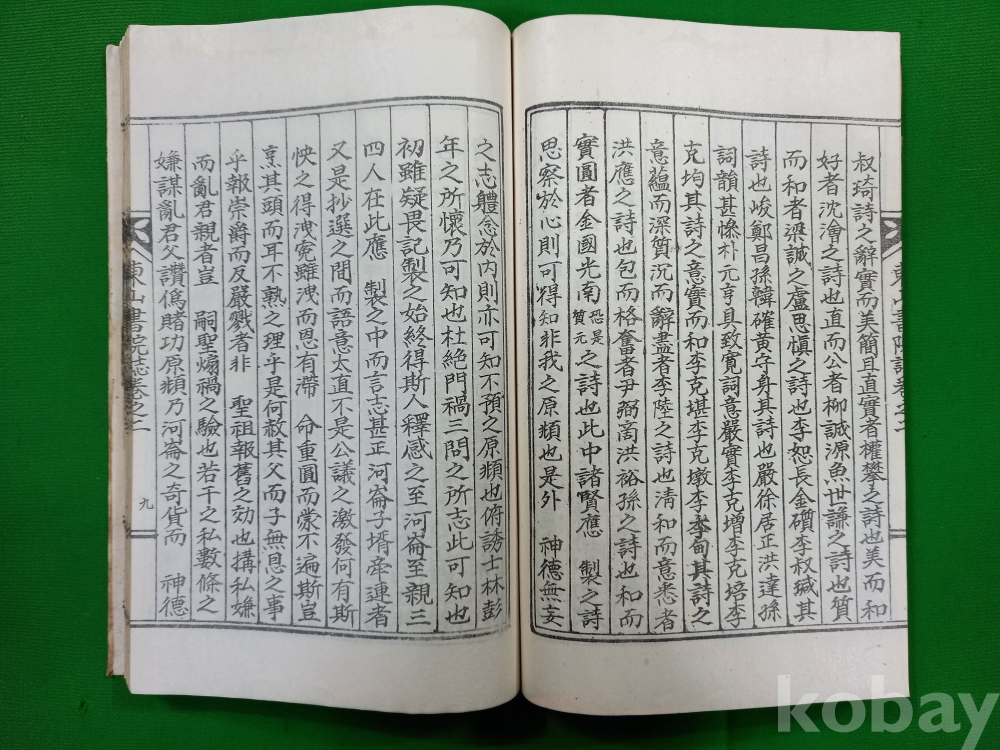 叔琦詩之辭實而美簡且直實者權攀之詩也美而和
好者沈澮之詩也直而公者柳誠源魚世謙之詩也質
而和者梁誠之盧思愼之詩也李恕長金礩李叔瑊其
詩也峻鄭昌孫韓確黃守身其詩也嚴徐居正洪達孫
詞韻甚慘朴元亨具致寬詞意嚴實李克增李克培李
克均其詩之意實而和李克堪李克墩李李甸其詩之
意蘊而深質沉而辭盡者李陸之詩也淸和而意悉者
洪應之詩也包而格奮者尹弼商洪裕孫之詩也和而
實圓者金國光南恐是質元之詩也此中諸賢應 製之詩
思察於心則可得知非我之原頪也是外 神德無妄
東山書院誌卷之二
之志體念於內則亦可知不預之原頪也俯誘士林彭
年之所懷乃可知也杜絶門禍三問之所志此可知也
初雖疑畏記製之始終得斯人釋感之至河崙至親三
四人在此應 製之中而言志甚正河崙子壻牽連者
又是抄選之間而語意太直不是公議之激發何有斯
怏之得洩寃雖洩而恩有滯 命重圓而蒙不遍斯豈
烹其頭而耳不熟之理乎是何赦其父而子無恩之事
乎報崇爵而反嚴戮者非 聖祖報舊之効也搆私嫌
而亂君親者豈 嗣聖煽禍之驗也若干之私數條之
嫌謀亂君父讃僞賭功原頪乃河崙之奇貨而 神德
東山書院誌卷之二
九
kobay